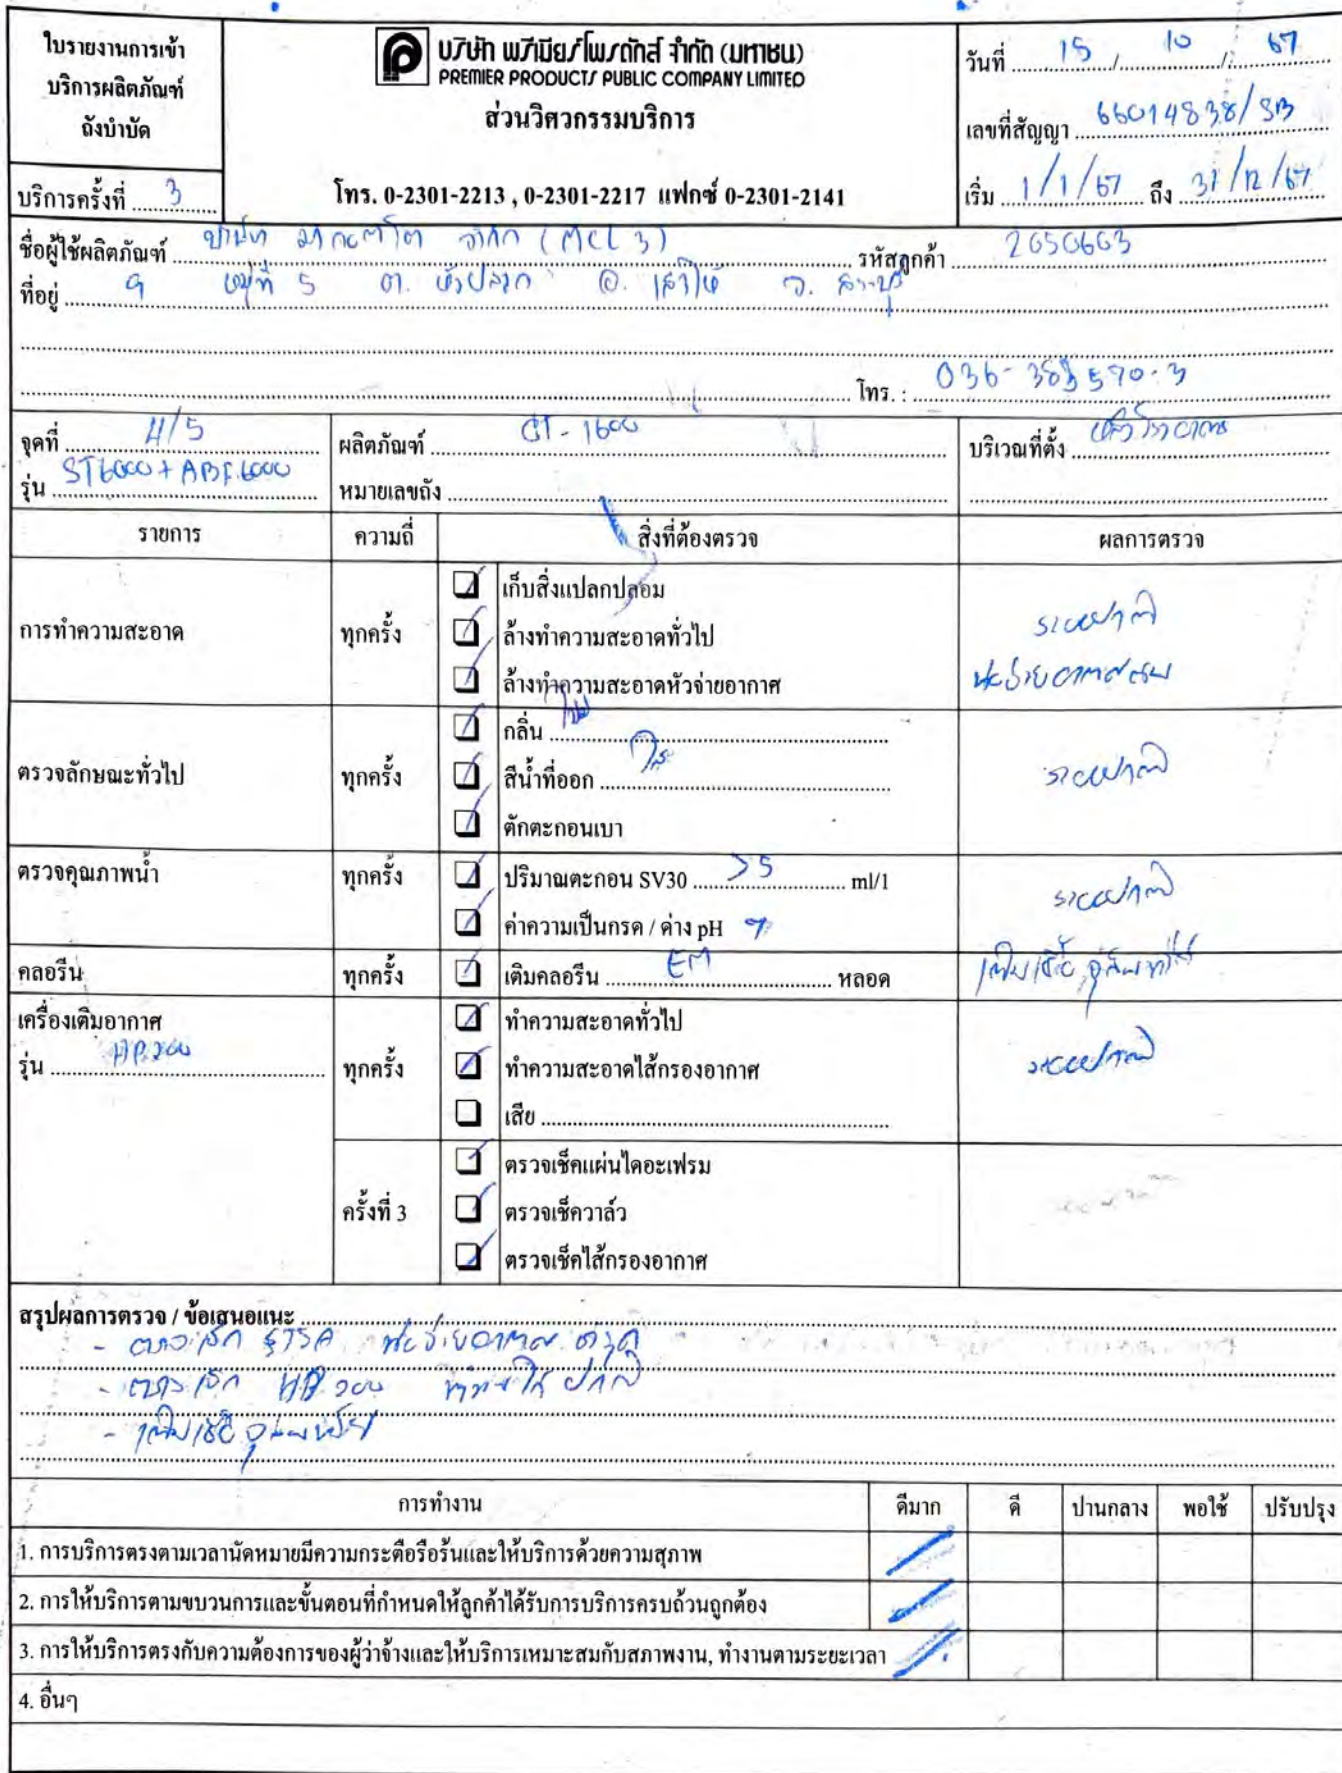 ใบรายงานการเข้า
บริการผลิตภัณฑ์
ถังบำบัด
บริการครั้งที่ 3
บริษัท พรีเมียร์โพรดักส์ จำกัด (มหาชน)
PREMIER PRODUCTS PUBLIC COMPANY LIMITED
ส่วนวิศวกรรมบริการ
โทร. 0-2301-2213 , 0-2301-2217 แฟกซ์ 0-2301-2141
วันที่ 15 / 10 / 67
เลขที่สัญญา 66014838/SB
เริ่ม 1/1/67 ถึง 31/12/67
ชื่อผู้ใช้ผลิตภัณฑ์ บริษัท จำกัด (MCL 3) รหัสลูกค้า 2650663
ที่อยู่ 9 หมู่ที่ 5 ต. หัวปลวก อ. เสาไห้ จ. สระบุรี
โทร. : 036-383570-3
จุดที่ 4/5
รุ่น ST6000+ABF.6000
ผลิตภัณฑ์ GT-1600
หมายเลขถัง
บริเวณที่ตั้ง
รายการ ความถี่ สิ่งที่ต้องตรวจ ผลการตรวจ
การทำความสะอาด ทุกครั้ง
เก็บสิ่งแปลกปลอม
ล้างทำความสะอาดทั่วไป
ล้างทำความสะอาดหัวจ่ายอากาศ
ระบบปกติ
ตรวจลักษณะทั่วไป ทุกครั้ง
กลิ่น ไม่มี
สีน้ำที่ออก ใส
ตักตะกอนเบา
ระบบปกติ
ตรวจคุณภาพน้ำ ทุกครั้ง
ปริมาณตะกอน SV30 >5 ml/1
ค่าความเป็นกรด / ด่าง pH 7
ระบบปกติ
คลอรีน ทุกครั้ง เติมคลอรีน EM หลอด เติมเชื้อจุลินทรีย์
เครื่องเติมอากาศ
รุ่น HP.200
ทุกครั้ง
ทำความสะอาดทั่วไป
ทำความสะอาดไส้กรองอากาศ
เสีย
ระบบปกติ
ครั้งที่ 3
ตรวจเช็คแผ่นไดอะเฟรม
ตรวจเช็ควาล์ว
ตรวจเช็คไส้กรองอากาศ
สรุปผลการตรวจ / ข้อเสนอแนะ
- ตรวจเช็ค
- ตรวจเช็ค HP.200 ทำงานได้ปกติ
- เติมเชื้อจุลินทรีย์
การทำงาน ดีมาก ดี ปานกลาง พอใช้ ปรับปรุง
1. การบริการตรงตามเวลานัดหมายมีความกระตือรือร้นและให้บริการด้วยความสุภาพ
2. การให้บริการตามขบวนการและขั้นตอนที่กำหนดให้ลูกค้าได้รับการบริการครบถ้วนถูกต้อง
3. การให้บริการตรงกับความต้องการของผู้ว่าจ้างและให้บริการเหมาะสมกับสภาพงาน, ทำงานตามระยะเวลา
4. อื่นๆ